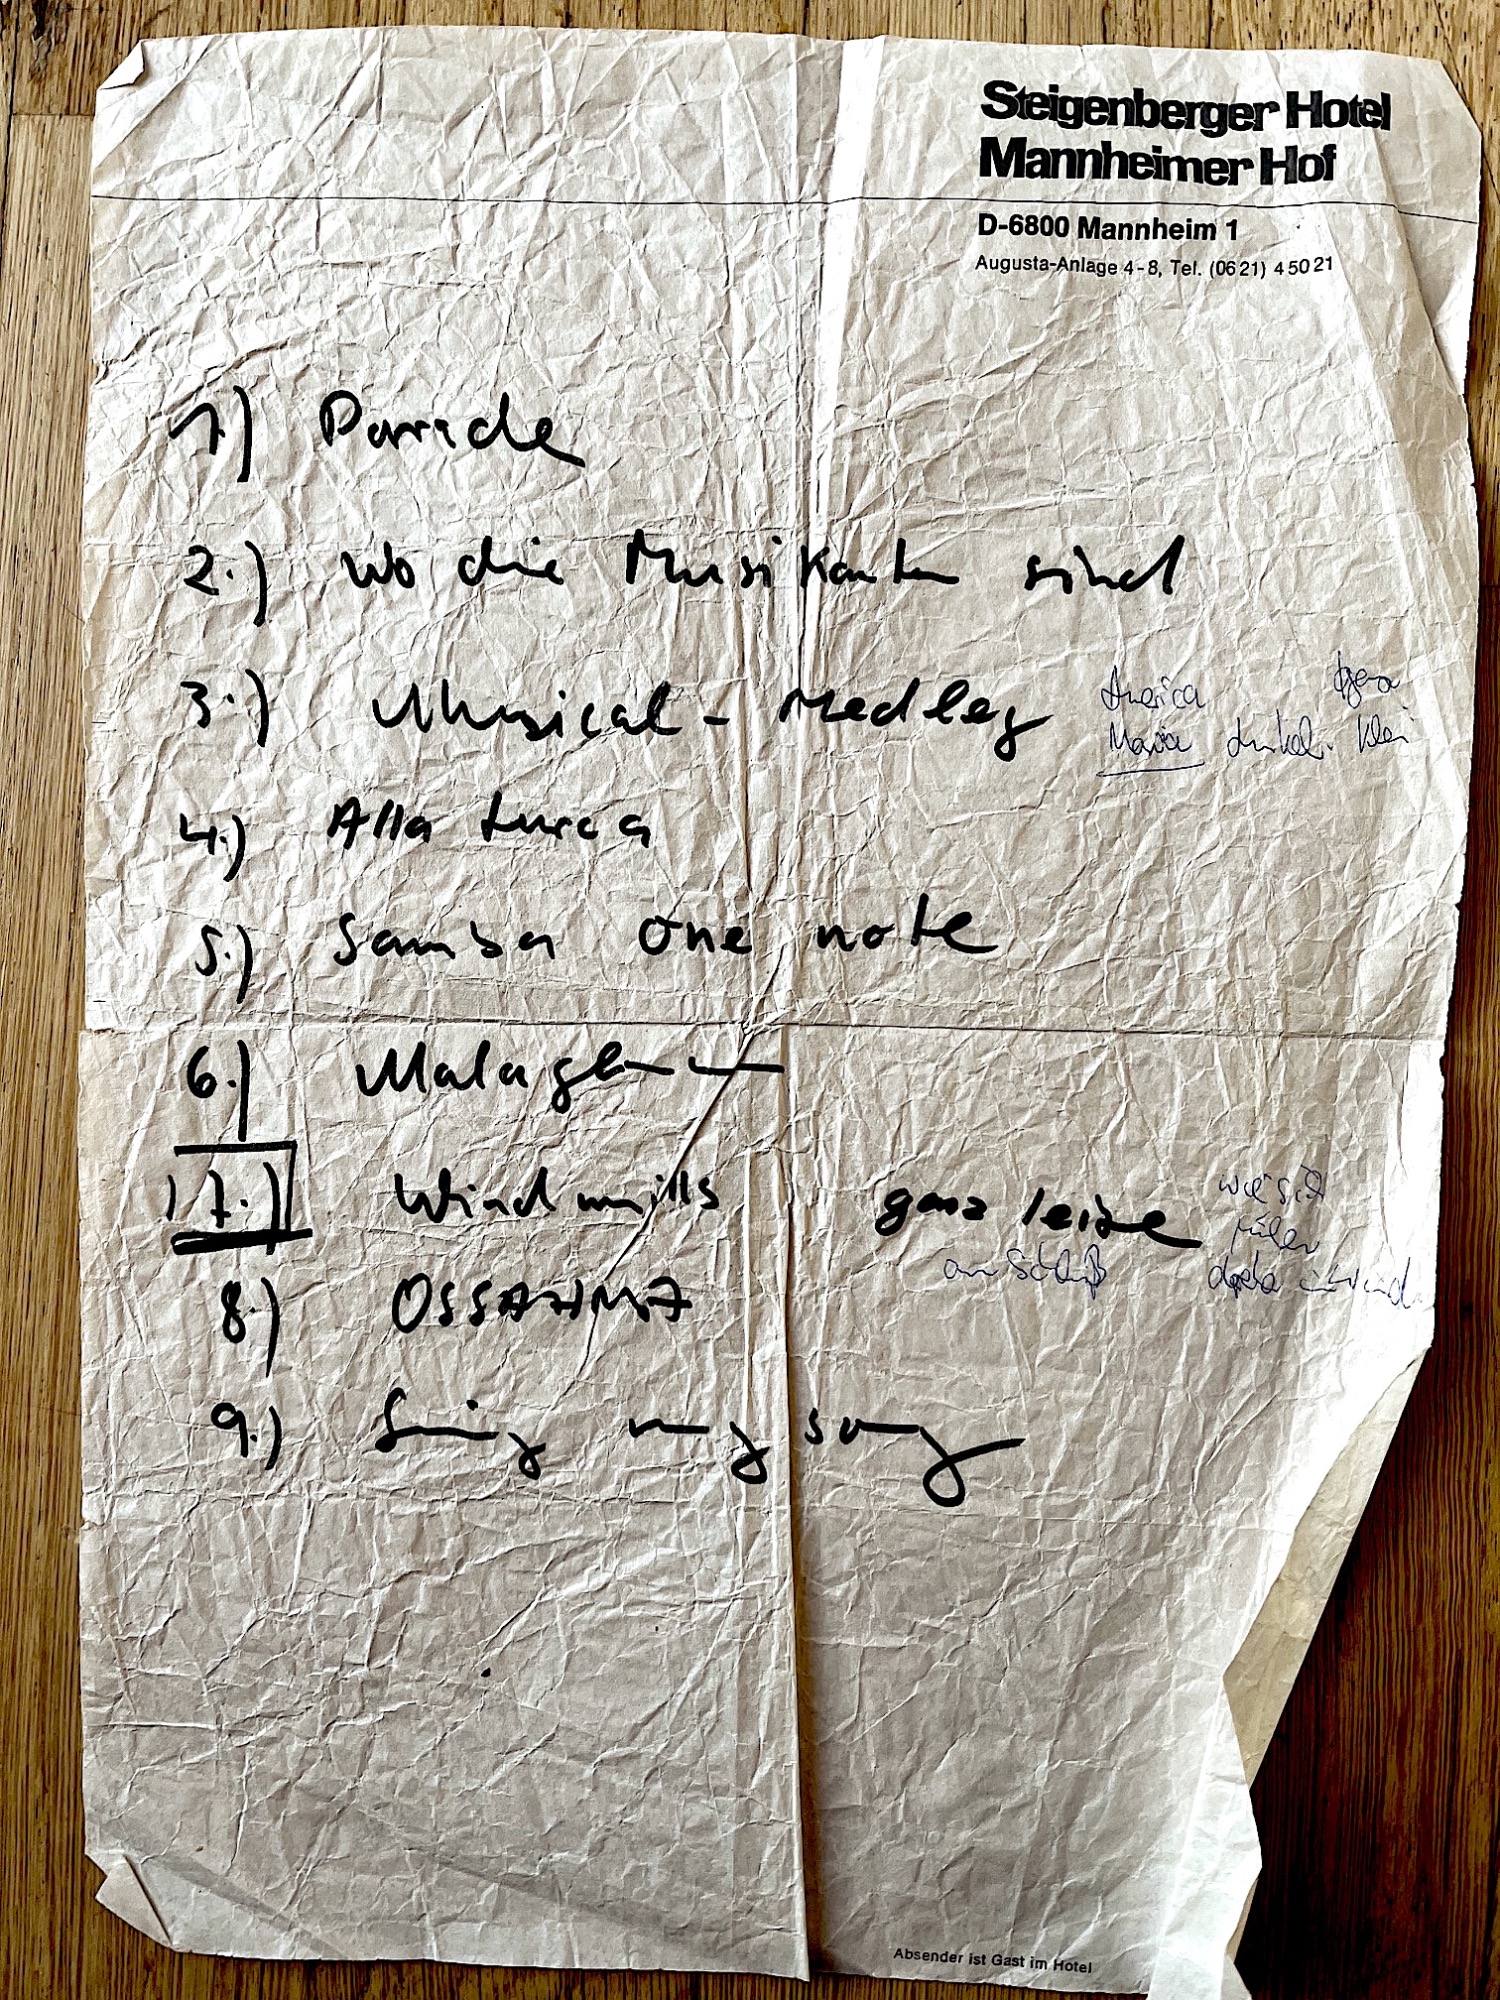 Steigenberger Hotel
Mannheimer Hof
D-6800 Mannheim 1
Augusta-Anlage 4-8, Tel. (06 21) 4 50 21
1.) Parade
2.) Wo die Musikanten sind
3.) Musical-Medley
America
Maria dunkel
4.) Alla turca
5.) Samba one note
6.) Malaguena
7.) Windmills ganz leise
am Schluß
8.) OSSAHNA
9.) Sing my song
Absender ist Gast im Hotel